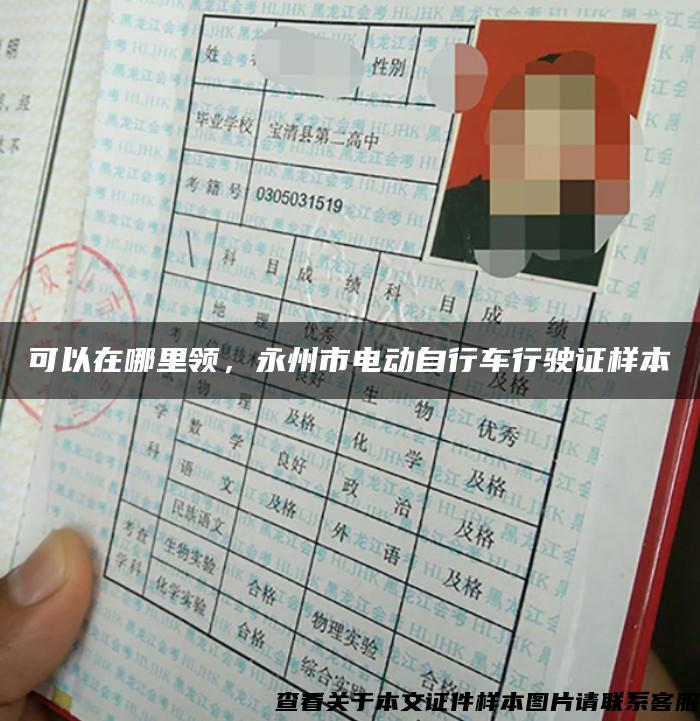 姓
性别
毕业学校 宝清县第二高中
考籍号 0305031519
科目 成绩 科目 成绩
地理 优秀
可以在哪里领，永州市电动自行车行驶证样本
物理 及格 生物 优秀
数学 良好 化学 及格
语文 及格 政治 及格
民族语文 外语 及格
考查学科 生物实验 合格 物理实验
化学实验 合格 综合实 合格
查看关于本文证件样本图片请联系客服